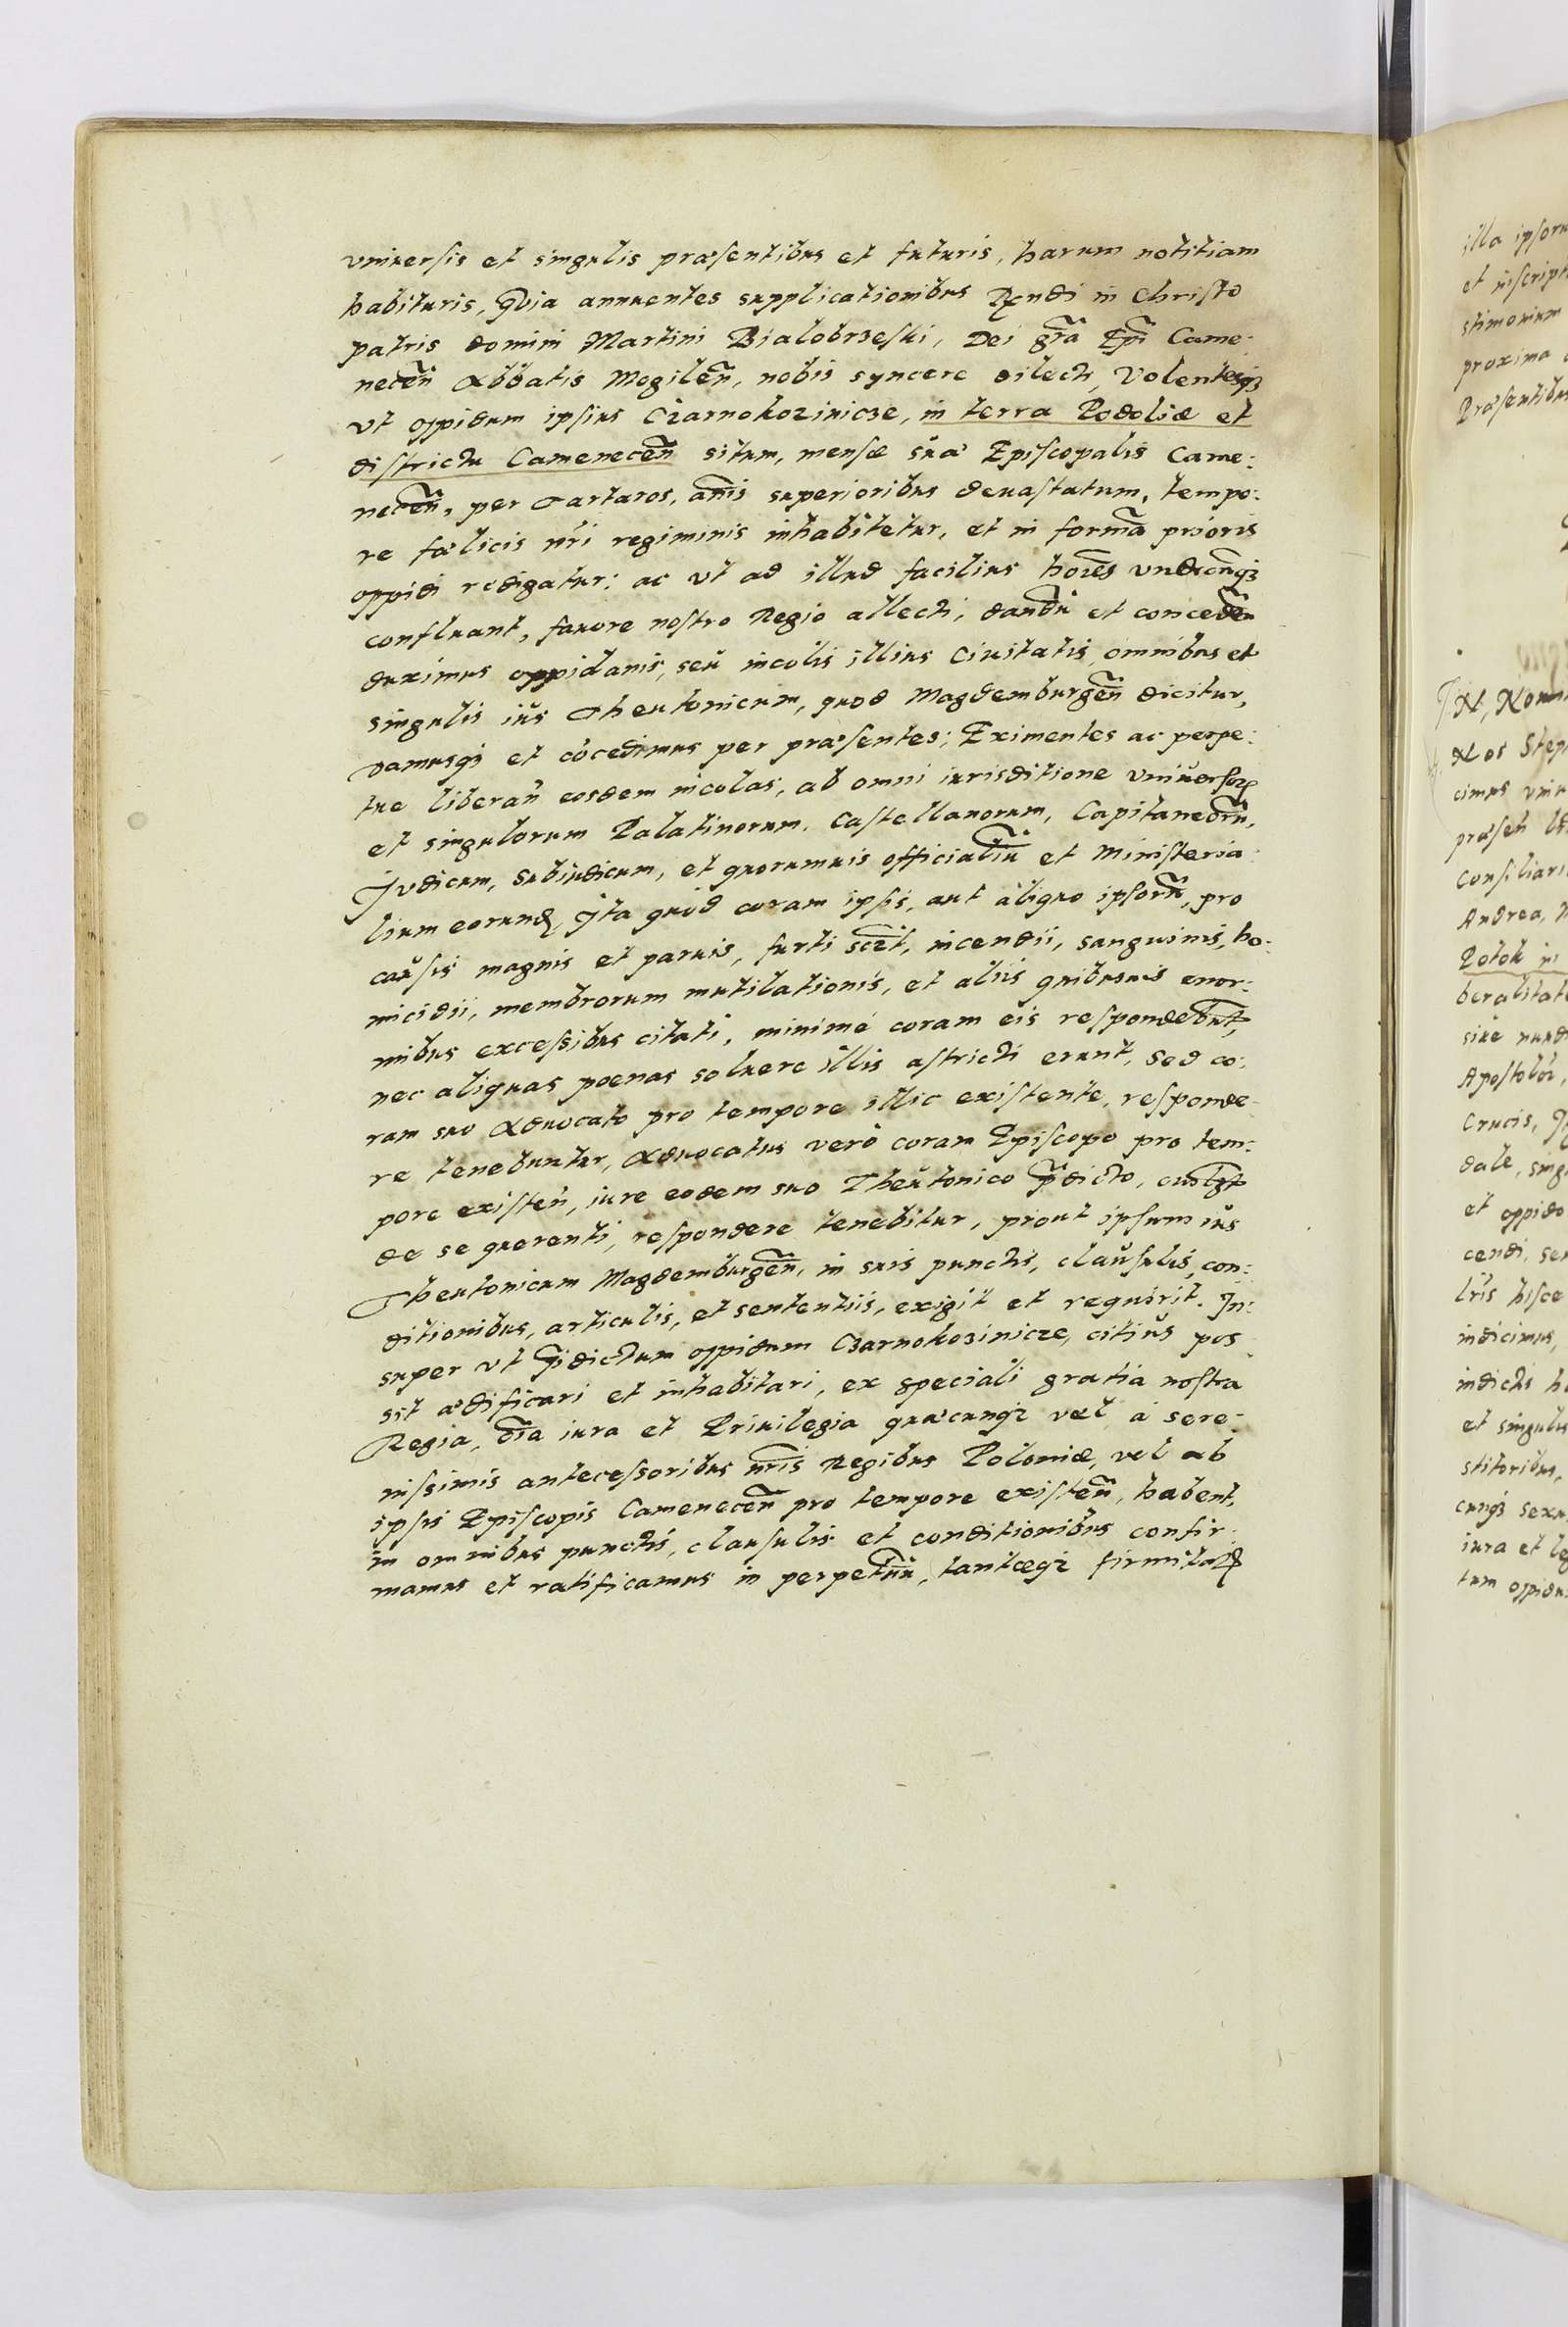 vniuersis et singulis præsentibus et futuris, harum notitiam
habituris, Quia annuentes supplicationibus Rndi in Christo
patris domini Martini Bialobrzeski, Dei gra͠ Epi͠ Came-
necen͠ Abbatis Mogilen͠, nobis syncere dilecti, Volentesq3
vt oppidum ipsius Czarnokozinicze, in terra Podoliæ et
districtu Camenecen͠ situm, mensæ suæ Episcopalis Came:
necen͠, per Tartaros, an͠is superioribus deuastatum, tempo:
re fœlicis nr͠i regiminis inhabitetur, et in forma͠ prioris
oppidi redigatur: ac vt ad illud facilius ho͠ies vndicunq3
confluant, fauore nostro Regio allecti, dandu͠ et conceden͠
duximus oppidanis, seu incolis illius Ciuitatis omnibus et
singulis ius Theutonicum, quod Magdemburgen͠ dicitur,
Damusq3 et co͠cedimus per præsentes: Eximentes ac perpe:
tue liberan͠ eosdem incolas, ab omni iurisditione vniuersoꝝ
et singulorum Palatinorum, Castellanorum, Capitaneoru͠,
Judicum, Subiudicum, et quorumuis officialiu͠ et Ministeria:
lium eorund, Ita quod coram ipsis, aut aliquo ipsoru͠, pro
causis magnis et paruis, furti sczt͠, incendii, sanguinis, ho-
micidii, membrorum mutilationis, et aliis quibusuis enor:
mibus excessibus citati, minimé coram eis respondebut͠,
nec aliquas poenas soluere illis astricti erunt, Sed co:
ram suo Aduocato pro tempore illic existente, responde-
re tenebuntur, Aduocatus verò coram Episcopo pro tem:
pore existen͠, iure eodem suo Theutonico p͠dicto,
de se querenti, respondere tenebitur, prout ipsum ius
Theutonicum Magdemburgen͠, in suis punctis, clausulis, con:
ditionibus, articulis, et sententiis, exigit et requirit. In:
super vt p͠dictum oppidum Czarnokozinicze, citius pos
sit ædificari et inhabitari, ex speciali gratia nostra
Regia, o͠ia iura et Priuilegia quæcunq3 vel à sere-
nissimis antecessoribus nr͠is Regibus Poloniæ, vel ab
ipsis Episcopis Camenecen͠ pro tempore existen͠, habent,
in omnibus punctis, clausulis et conditionibus confir-
mamus et ratificamus in perpetuu͠, tantæq3
illa ipsoru
et inscript
stimonium
proxima
Præsentibus
IN, Nomi
Nos Step
cimus vniu
Consiliari
Andrea,
Potok in
beralitat
siue nund
Apostolor,
Crucis,
dale, sing
et oppido
cendi, seu
lr͠is hisce
indicimus,
indictis
et singulis
stitoribus,
cunq3 sexu
iura et
tum oppidu